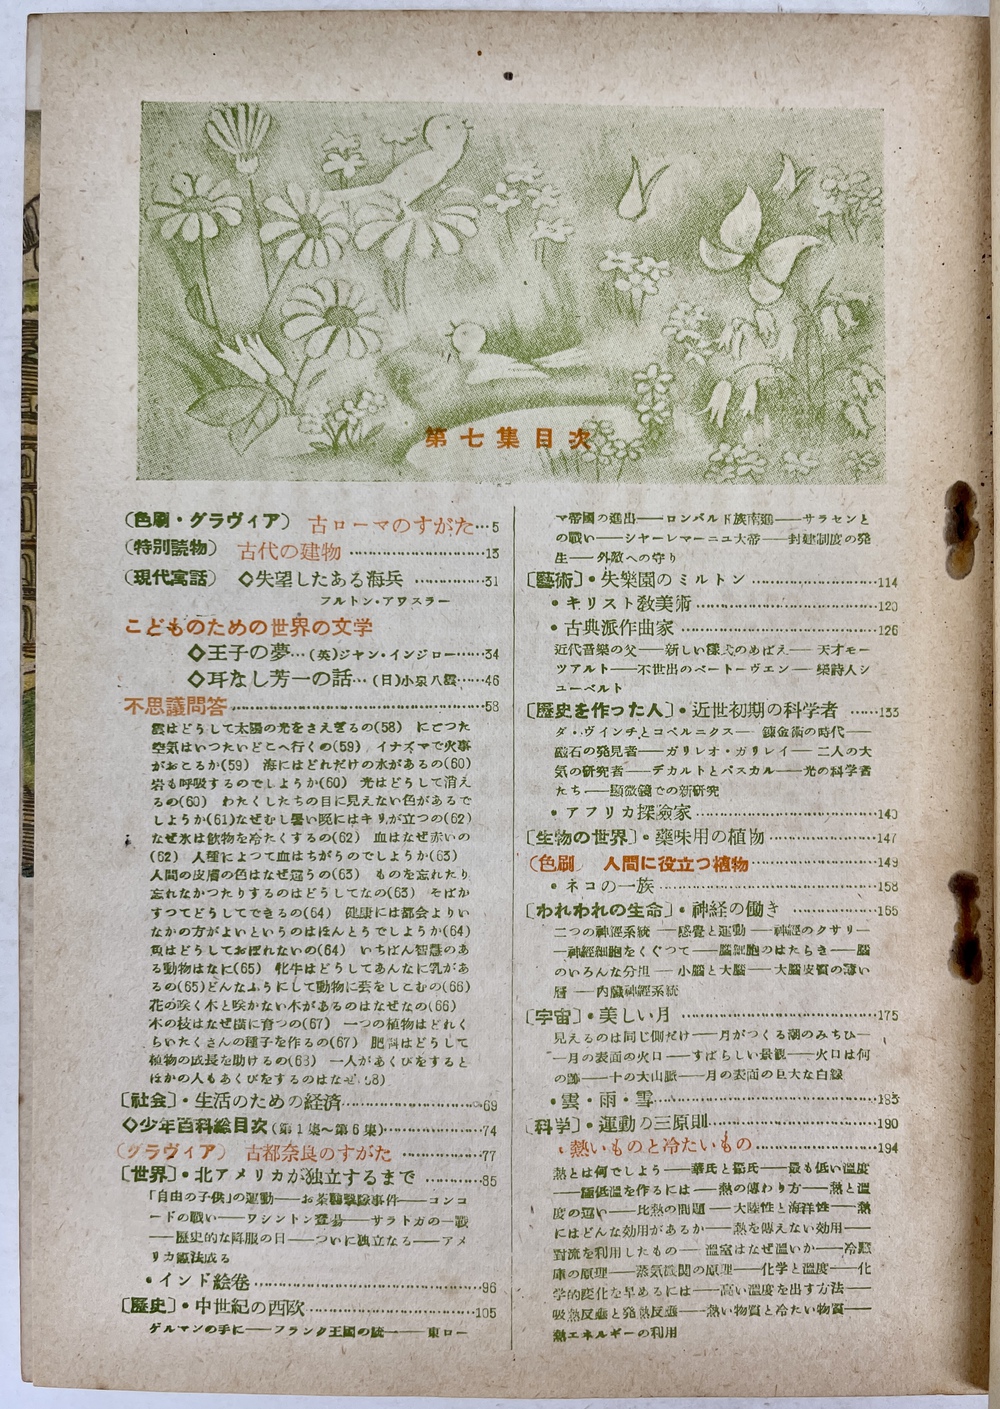 第七集目次
〔色刷・グラヴィア〕 古ローマのすがた…5
〔特別読物〕 古代の建物…………………13
〔現代寓話〕 ◇失望したある海兵…………31
フルトン・アウスラー
こどものための世界の文学
◇王子の夢…(英)ジャン・インジロー……34
◇耳なし芳一の話…(日)小泉八雲……46
不思議問答……………………………………58
雲はどうして太陽の光をさえぎるの(58) にごつた
空気はいつたいどこへ行くの(59) イナズマで火事
がおこるか(59) 海にはどれだけの水があるの(60)
岩も呼吸するのでしようか(60) 光はどうして消え
るの(60) わたくしたちの目に見えない色があるで
しようか(61)なぜむし暑い晩にはキリが立つの(62)
なぜ氷は飲物を冷たくするの(62) 血はなぜ赤いの
(62) 人種によつて血はちがうのでしようか(63)
人間の皮膚の色はなぜ違うの(63) ものを忘れたり
忘れなかつたりするのはどうしてなの(63) そばか
すつてどうしてできるの(64) 健康には都会よりい
なかの方がよいというのはほんとうでしようか(64)
魚はどうしておぼれないの(64) いちばん智慧のあ
る動物はなに(65) 牝牛はどうしてあんなに乳があ
るの(65)どんなふうにして動物に芸をしこむの(66)
花の咲く木と咲かない木があるのはなぜなの(66)
木の枝はなぜ横に育つの(67) 一つの植物はどれく
らいたくさんの種子を作るの(67) 肥料はどうして
植物の成長を助けるの(68) 一人があくびをすると
ほかの人もあくびをするのはなぜ(68)
〔社会〕・生活のための経済…………………69
◇少年百科総目次(第1集〜第6集)…………74
〔グラヴィア〕 古都奈良のすがた…………77
〔世界〕・北アメリカが独立するまで………85
「自由の子供」の運動——お茶船襲撃事件——コンコ
ードの戦い——ワシントン登場——サラトガの一戦
——歴史的な降服の日——ついに独立なる——アメ
リカ憲法成る
・インド絵巻……………………………………96
〔歴史〕・中世紀の西欧………………………105
ゲルマンの手に——フランク王國の統一——東ロー
マ帝國の進出——ロンバルド族南進——サラセンと
の戦い——シャーレマーニュ大帝——封建制度の発
生——外敵への守り
〔藝術〕・失樂園のミルトン…………………114
・キリスト教美術………………………………120
・古典派作曲家…………………………………126
近代音樂の父——新しい様式のめばえ——天才モー
ツアルト——不世出のベートーヴエン——樂詩人シ
ューベルト
〔歴史を作った人〕・近世初期の科学者 ……133
ダ・ヴインチとコペルニクス—— 錬金術の時代——
磁石の発見者——ガリレオ・ガリレイ——二人の大
気の研究者——デカルトとパスカル——光の科学者
たち——顕微鏡での新研究
・アフリカ探險家………………………………140
〔生物の世界〕・藥味用の植物………………147
〔色刷〕 人間に役立つ植物…………………149
・ネコの一族……………………………………158
〔われわれの生命〕・神経の働き ……………165
二つの神経系統 ——感覚と運動 ——神経のクサリ—
—神経細胞をくぐつて——脳細胞のはたらき——脳
のいろんな分担 ——小脳と大脳——大脳皮質の薄い
層 ——内臓神経系統
〔宇宙〕・美しい月 ……………………………175
見えるのは同じ側だけ——月がつくる潮のみちひ—
—月の表面の火口——すばらしい景観——火口は何
の跡——十の大山脈——月の表面の巨大な白線
・雲・雨・雪……………………………………185
〔科学〕・運動の三原則………………………190
・熱いものと冷たいもの………………………194
熱とは何でしよう——華氏と摂氏——最も低い温度
——極低温を作るには——熱の傳わり方——熱と温
度の違い——比熱の問題——大陸性と海洋性——熱
にはどんな効用があるか——熱を傳えない効用——
對流を利用したもの——温室はなぜ温いか——冷蔵
庫の原理——蒸気機関の原理——化学と温度——化
学的変化を早めるには——高い温度を出す方法——
吸熱反應と発熱反應——熱い物質と冷たい物質——
熱エネルギーの利用